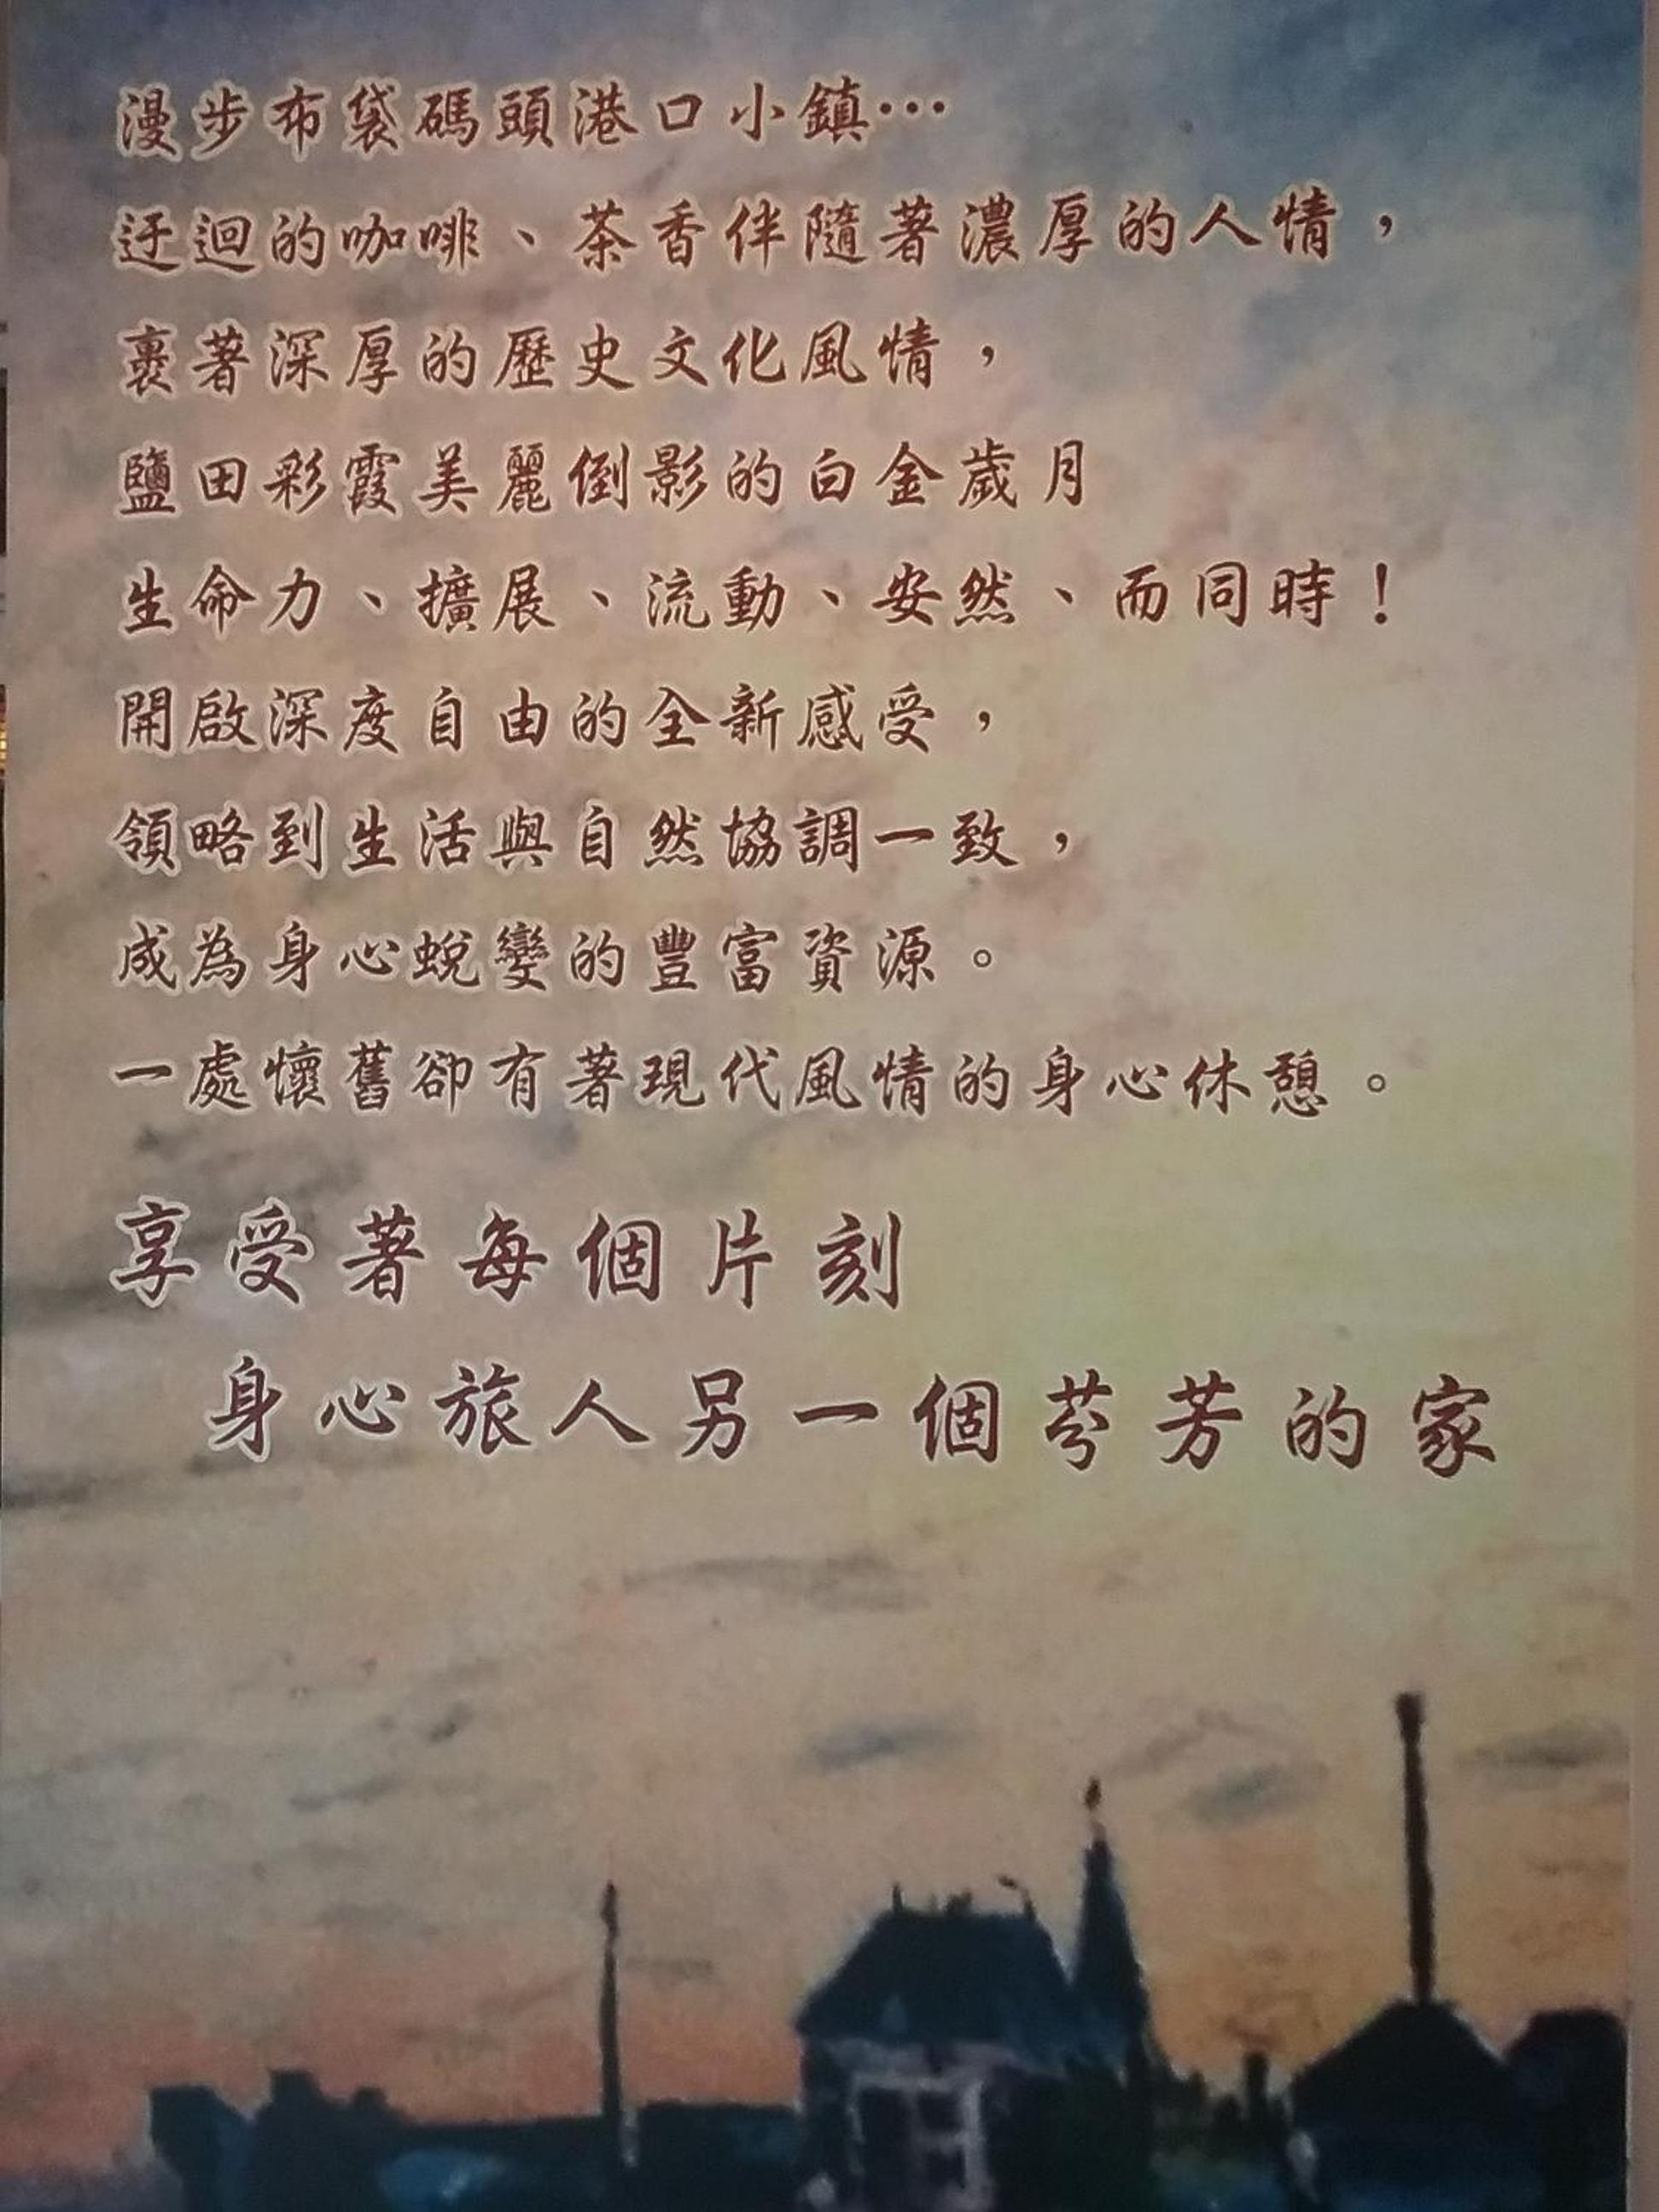 漫步布袋碼頭港口小鎮⋯
迂迴的咖啡、茶香伴隨著濃厚的人情，
裹著深厚的歷史文化風情，
鹽田彩霞美麗倒影的白金歲月
生命力、擴展、流動、安然、而同時！
開啟深度自由的全新感受，
領略到生活與自然協調一致，
成為身心蛻變的豐富資源。
一處懷舊卻有著現代風情的身心休憩。
享受著每個片刻
身心旅人另一個芬芳的家